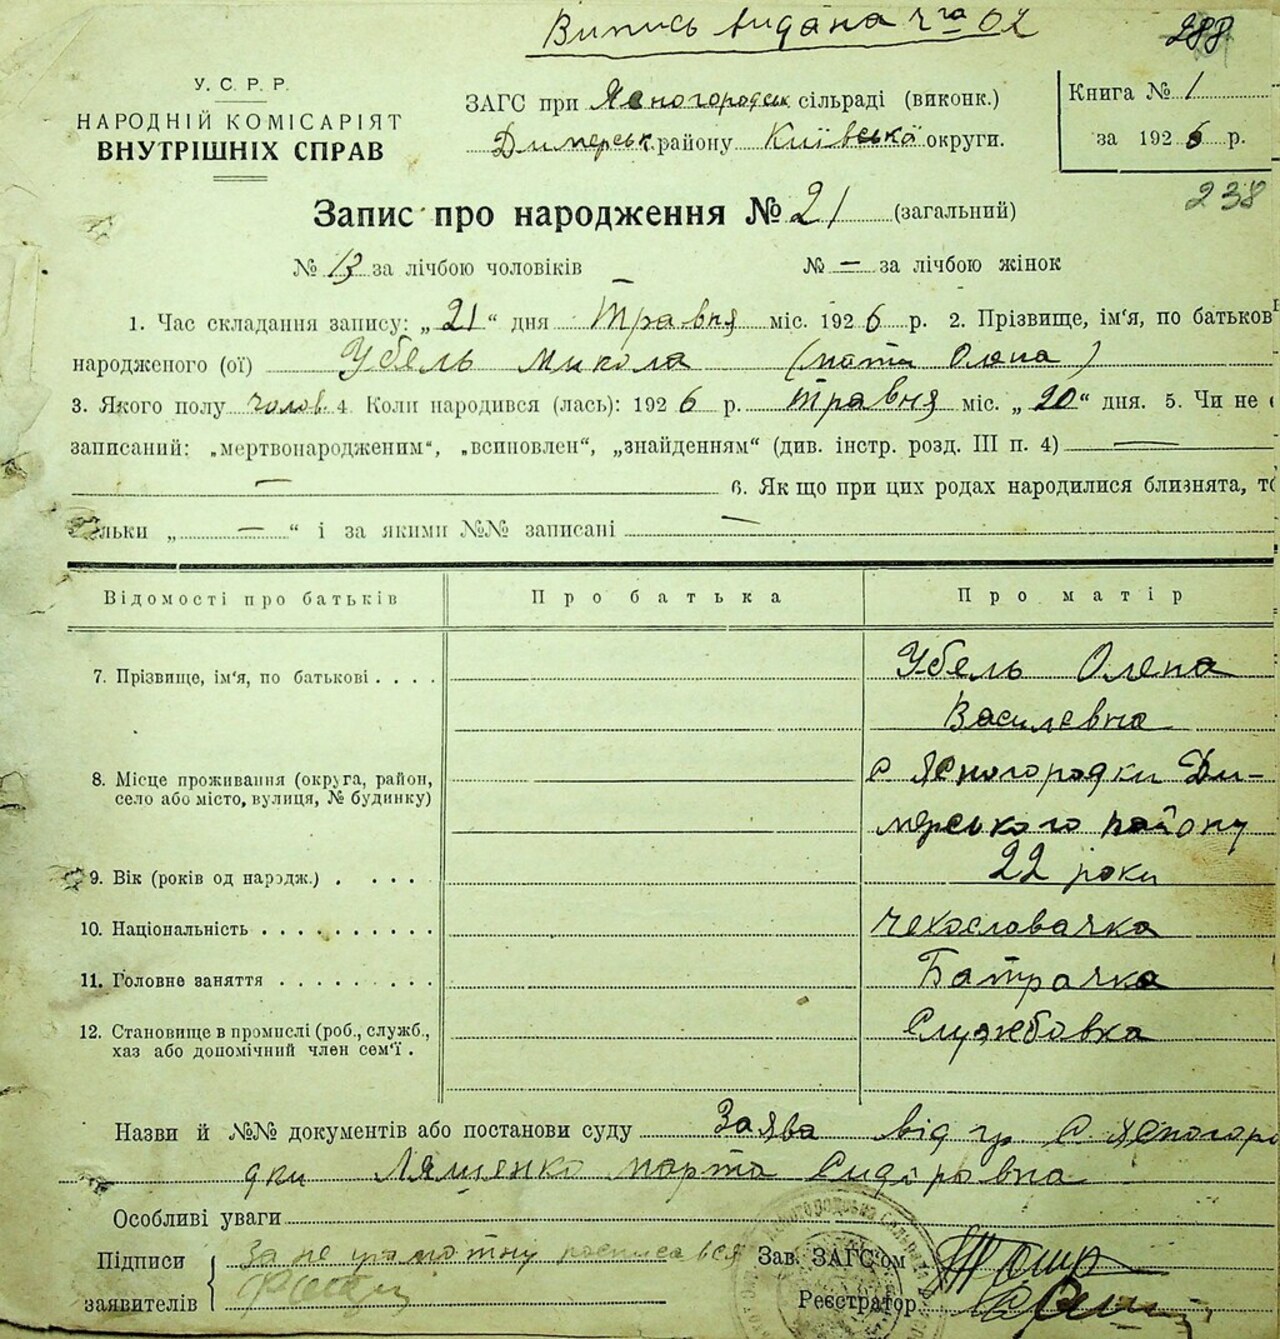 Випись видана
288
У. С. Р. Р.
НАРОДНІЙ КОМІСАРІЯТ
ВНУТРІШНІХ СПРАВ
ЗАГС при Ясногородськ сільраді (виконк.)
Димерськ району Київської округи.
Книга № 1
за 1926 р.
238
Запис про народження № 21 (загальний)
№ 13 за лічбою чоловіків № — за лічбою жінок
1. Час складання запису: „21“ дня Травня міс. 1926 р. 2. Прізвище, ім'я, по батькові
народженого (ої) Убель Микола (мати Олена)
3. Якого полу чолов. 4. Коли народився (лась): 1926 р. травня міс. „20“ дня. 5. Чи не є
записаний: „мертвонародженим“, „всиновлен“, „знайденням“ (див. інстр. розд. III п. 4) —
— 6. Як що при цих родах народилися близнята, то
скільки „ — “ і за якими №№ записані —
Відомості про батьків Про батька Про матір
7. Прізвище, ім'я, по батькові . . . . Убель Олена
Василєвна
8. Місце проживання (округа, район, с Ясногородки Ди-
село або місто, вулиця, № будинку) мерського району
9. Вік (років од народж.) . . . . 22 роки
10. Національність . . . . . . . . . . чехословачка
11. Головне заняття . . . . . . . . . Батрачка
12. Становище в промислі (роб., службб., Служебовка
хаз або допомічний член сем'ї .
Назви й №№ документів або постанови суду Заява від гр с. Ясногоро
дки Ляшенко Марта Сидоровна
Особливі уваги
Підписи За не грамотну росписався
заявителів
Зав. ЗАГС'ом
Реєстратор